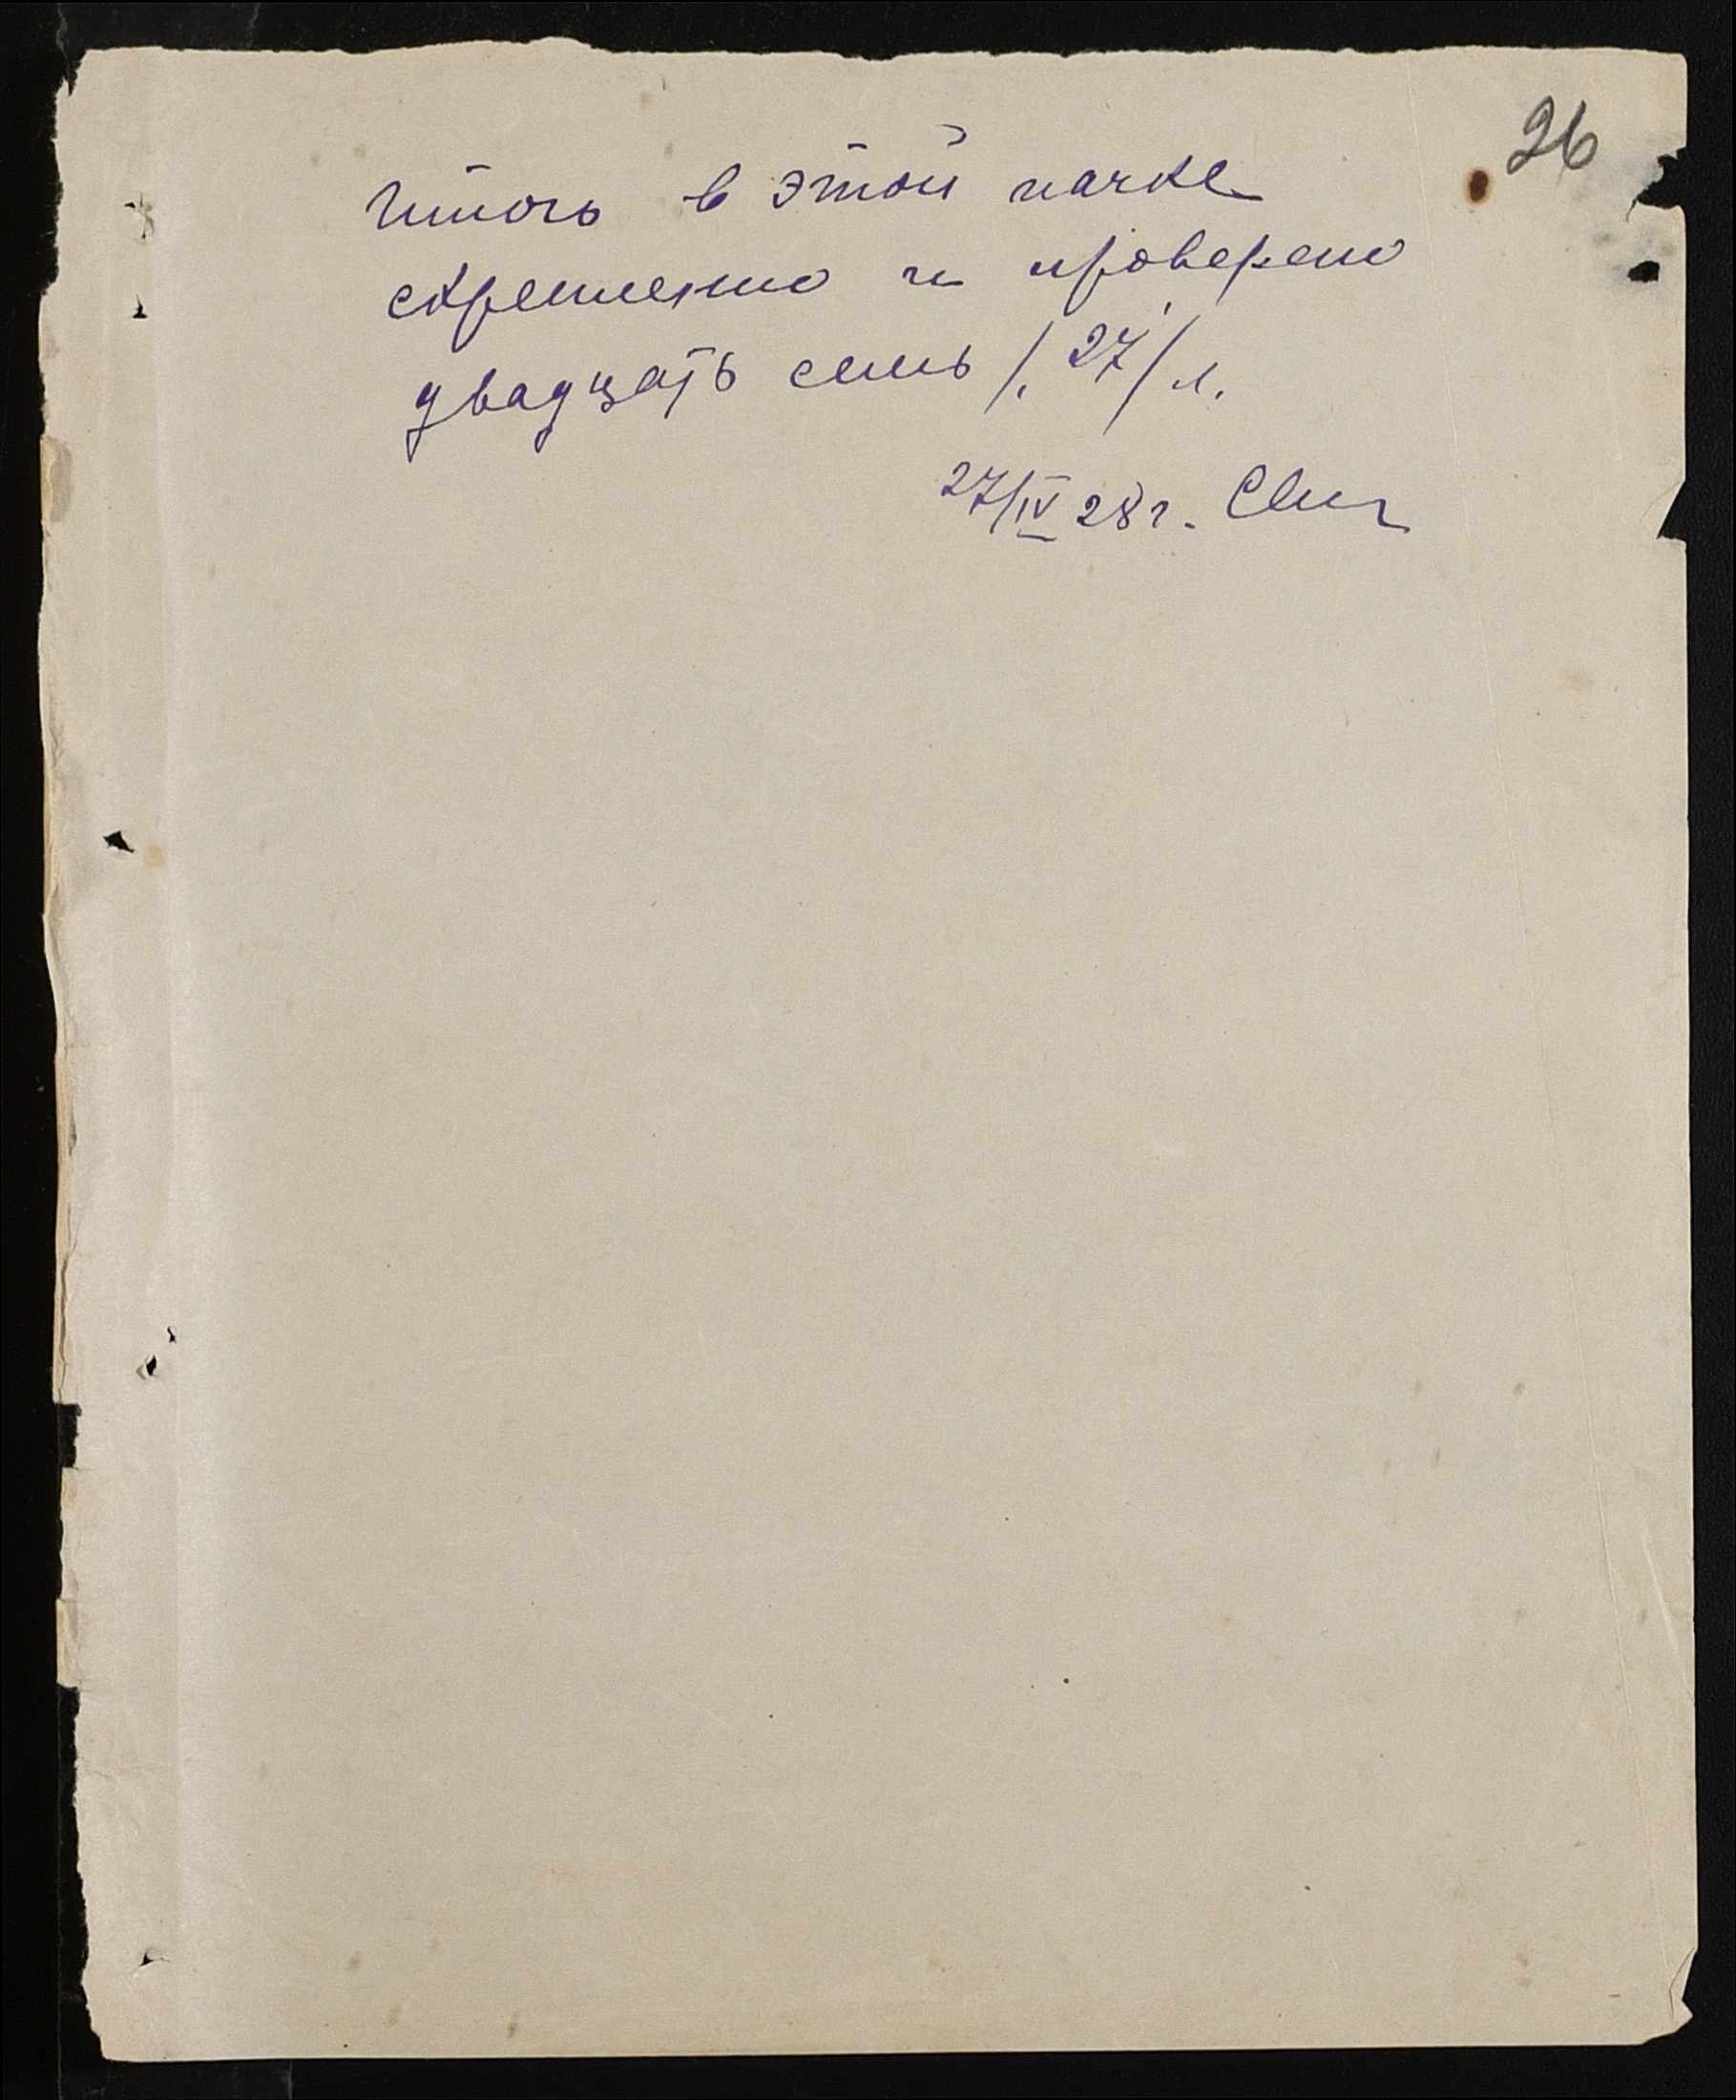 26
Итого в этой пачке
скреплено и проверено
двадцать семь /.27/ л.
27/IV 28 г.